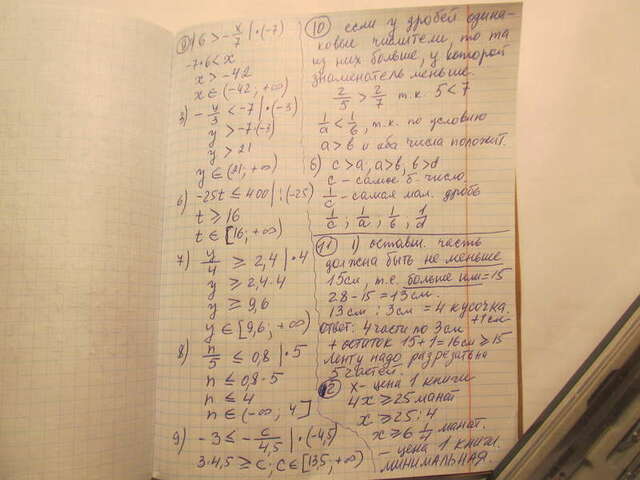 9) 16 > -x/7 | ·(-7)
-7·6 < x
x > -42
x ∈ (-42; +∞)
3) -y/3 < -7 | ·(-3)
y > -7·(-3)
y > 21
y ∈ (21; +∞)
6) -25t ≤ 400 | :(-25)
t ≥ 16
t ∈ [16; +∞)
7) y/4 ≥ 2,4 | ·4
y ≥ 2,4·4
y ≥ 9,6
y ∈ [9,6; +∞)
8) n/5 ≤ 0,8 | ·5
n ≤ 0,8·5
n ≤ 4
n ∈ (-∞; 4]
9) -3 ≤ -c/4,5 | ·(-4,5)
3·4,5 ≥ c; c ∈ [13,5; +∞)
10 если у дробей одина-
ковые числители, то та
из них больше, у которой
знаменатель меньше.
2/5 > 2/7 т.к. 5 < 7
1/a < 1/b, т.к. по условию
a > b и оба числа положит.
б) c > a, a > b, b > d
c - самое б. число.
1/c - самая мал. дробь
1/c ; 1/a ; 1/b ; 1/d
11 1) оставш. часть
должна быть не меньше
15см, т.е. больше или = 15
28 - 15 = 13 см.
13 см : 3 см = 4 кусочка
+1 см
ответ: 4 части по 3 см
+ остаток 15 + 1 = 16 см ≥ 15
Ленту надо разрезать на
5 частей.
12 x - цена 1 книги
4x ≥ 25 манат
x ≥ 25 : 4
x ≥ 6 1/4 манат.
- цена 1 книги.
МИНИМАЛЬНАЯ